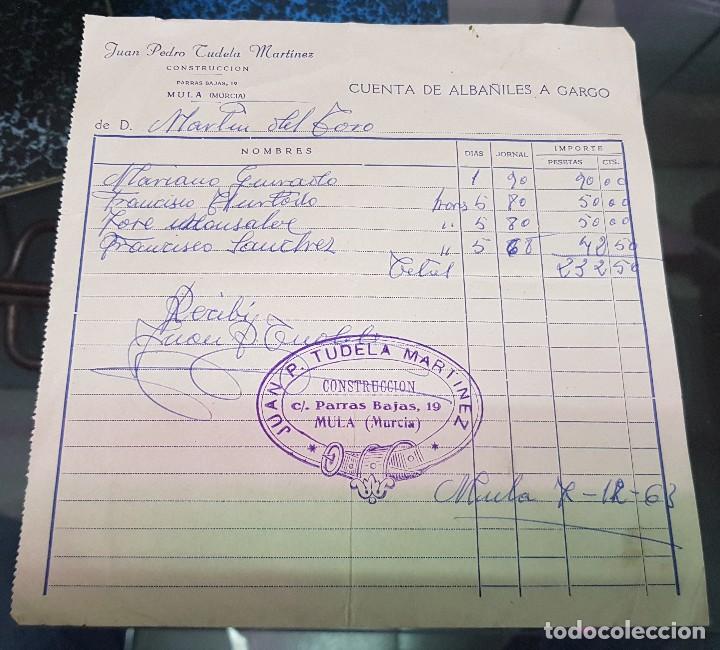 Juan Pedro Tudela Martínez
CONSTRUCCION
PARRAS BAJAS, 19
MULA (MURCIA)
CUENTA DE ALBAÑILES A GARGO
de D. Martin del Toro
NOMBRES DIAS JORNAL IMPORTE
PESETAS CTS.
Mariano 1 90 90 00
Francisco Hurtado horas 5 80 50 00
Jose Monsalve " 5 80 50 00
Francisco Sanchez " 5 68 42 50
Total 232 50
Recibi
Juan P. Tudela
JUAN P. TUDELA MARTINEZ
CONSTRUCCION
c/. Parras Bajas, 19
MULA (Murcia)
Mula 7-12-63
todocoleccion.net